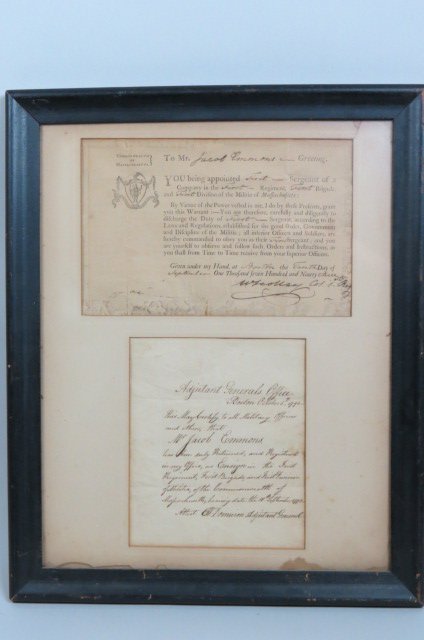 COMMONWEALTH
OF
MASSACHUSETTS
To Mr. Jacob Emmons Greeting.
YOU being appointed First Sergeant of a
Company in the First Regiment, First Brigade
and First Division of the Militia of Massachusetts:
By Virtue of the Power vested in me, I do by these Presents, grant
you this Warrant :—You are therefore, carefully and diligently to
discharge the Duty of First Sergeant, according to the
Laws and Regulations, established for the good Order, Government
and Discipline of the Militia ; all inferior Officers and Soldiers, are
hereby commanded to obey you as their Sergeant, and you
are yourself to observe and follow such Orders and Instructions, as
you shall from Time to Time receive from your Superior Officers.
Given under my Hand, at Boston the Day of
September One Thousand Seven Hundred and Ninety
Adjutant Generals Office
Boston October 1790
This May Certify to all Military Officers
and others, that
Mr. Jacob Emmons
has been duly Returned, and Registered
in my Office, as Ensign in the First
Regiment, First Brigade, and First Division
of the Commonwealth of
Massachusetts, having date the September
Attest Donnison Adjutant General